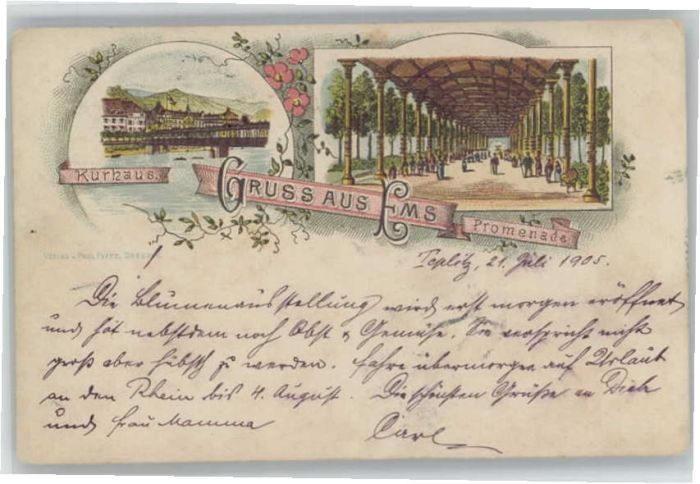 Kurhaus.
GRUSS AUS EMS
Promenade
VERLAG v. PAUL
Teplitz, 21. Juli 1905.
Die Blumenausstellung wird erst morgen eröffnet
und hat nebstdem noch Obst & Gemüse. Sie verspricht nicht
groß aber hübsch zu werden. Fahre übermorgen auf Urlaub
an den Rhein bis 4. August. Die schönsten Grüße an Dich
und Frau Mamma
Carl